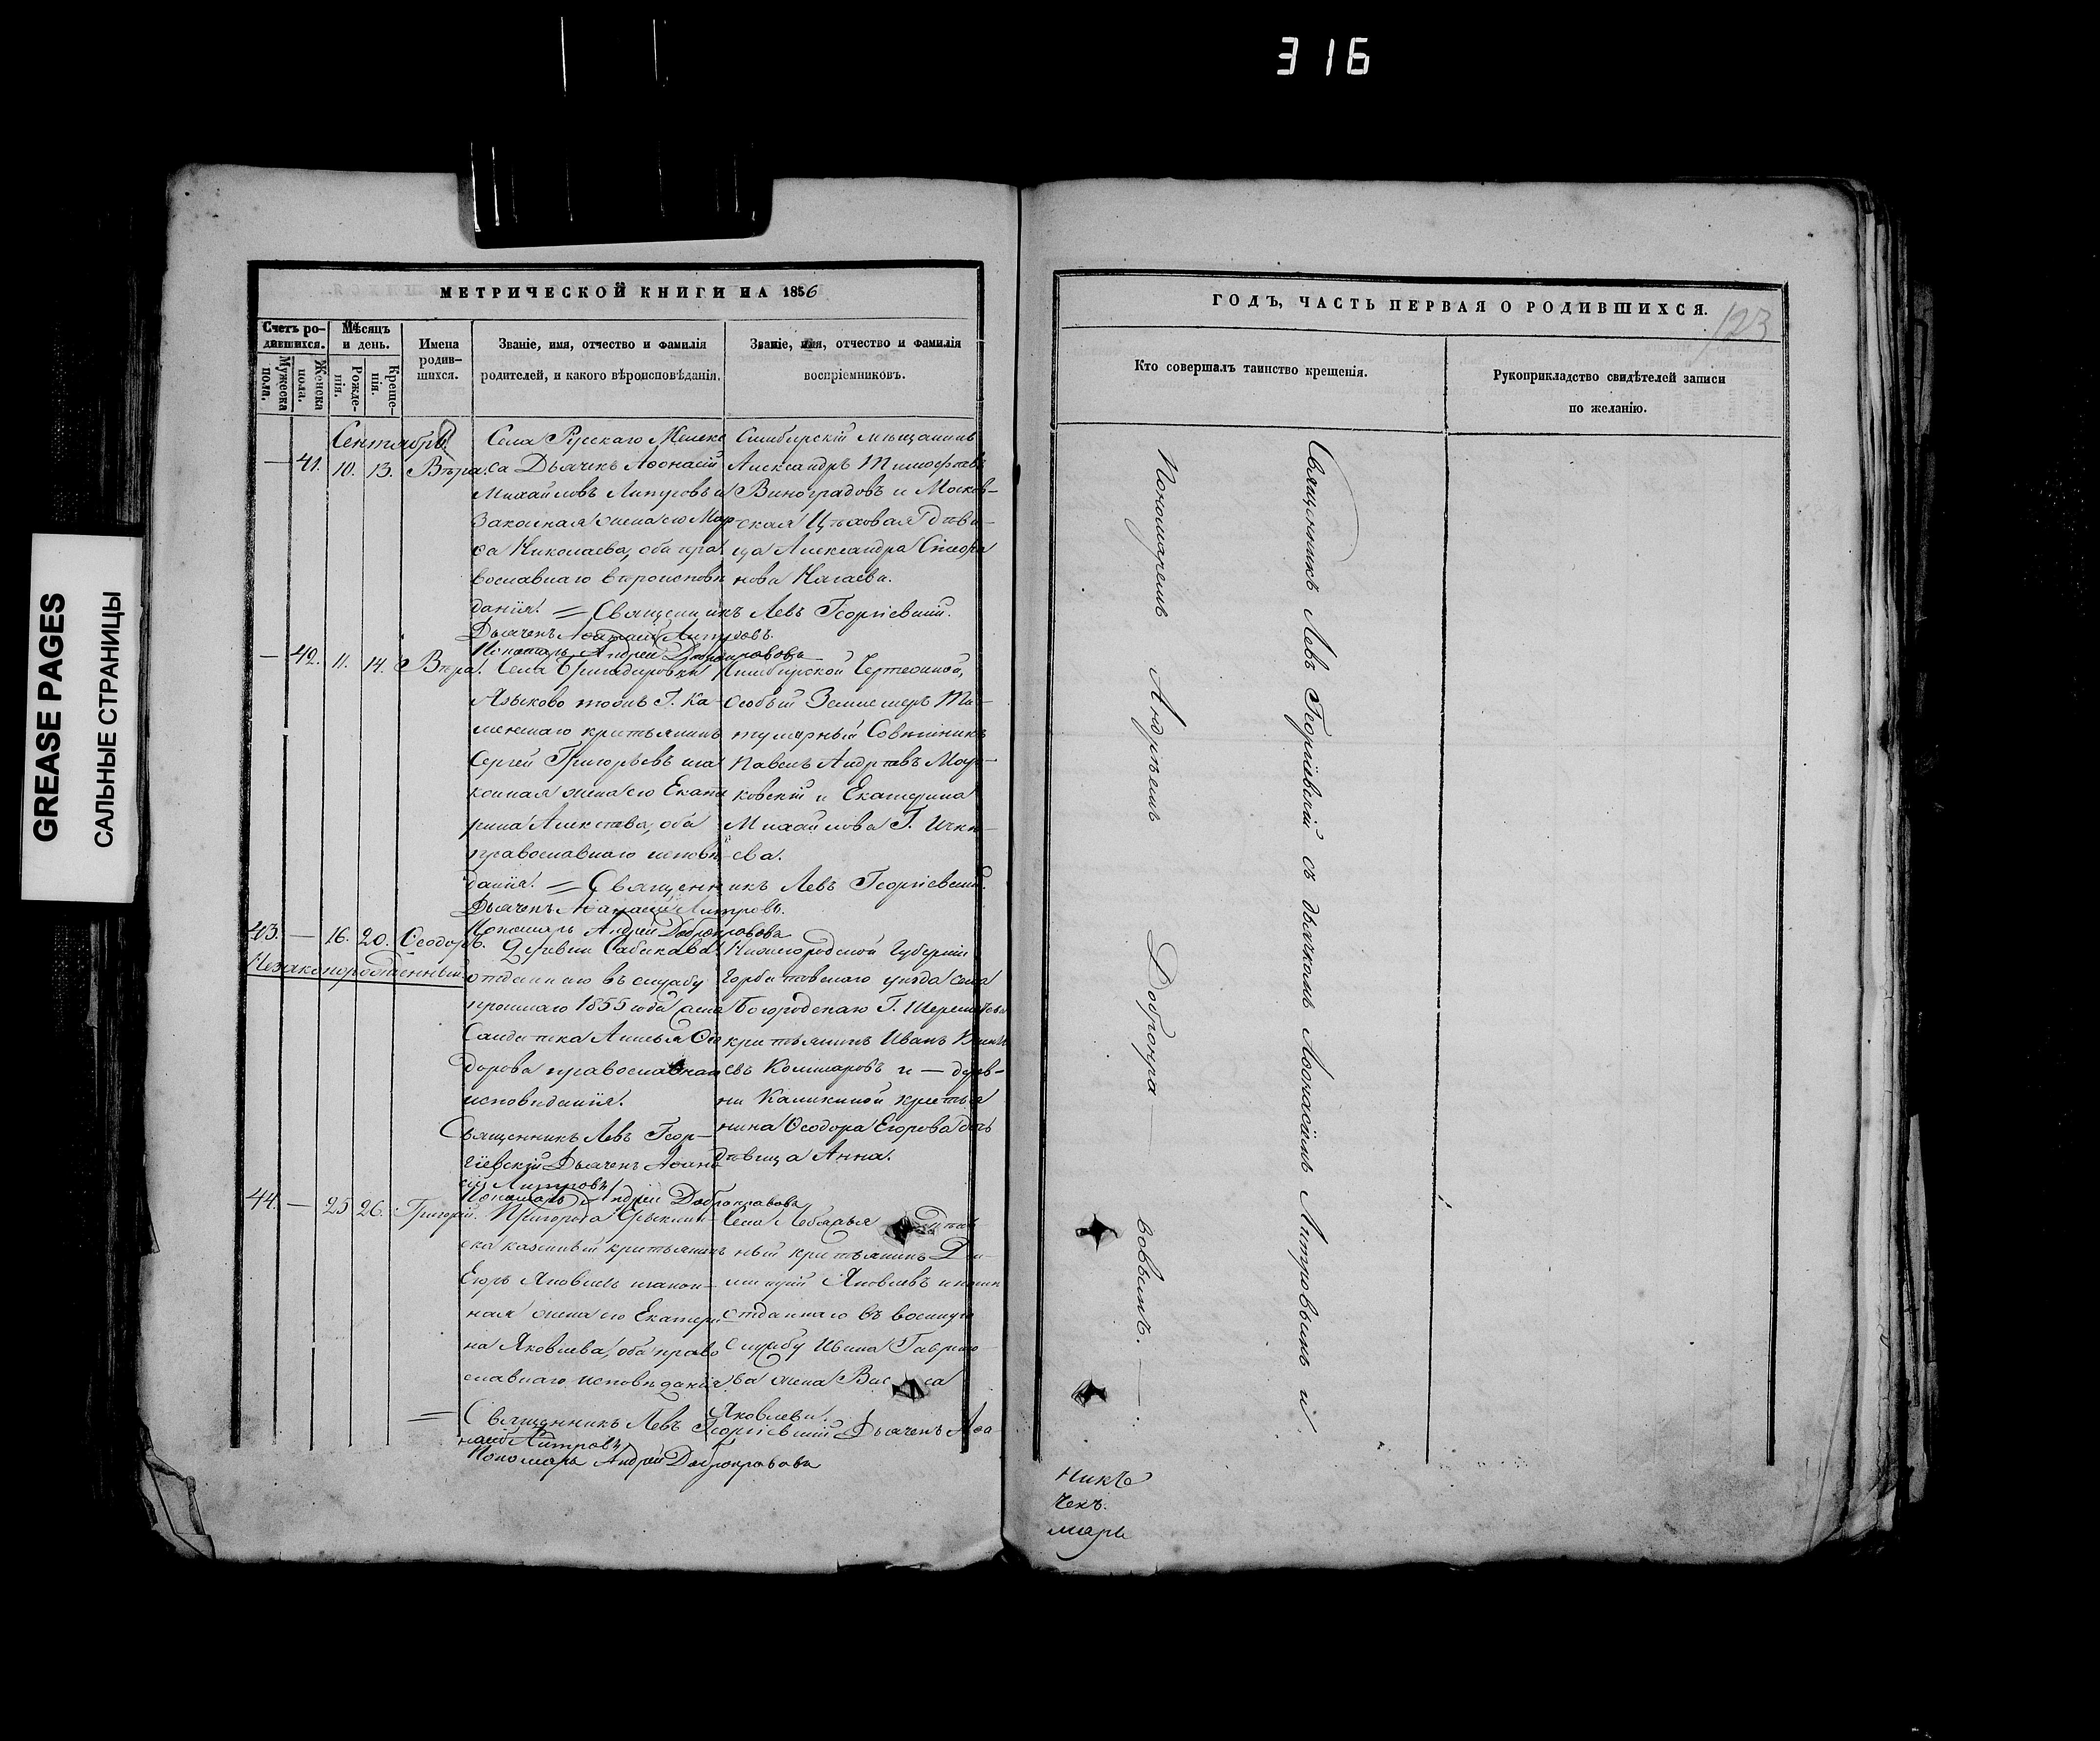 316
GREASE PAGES
САЛЬНЫЕ СТРАНИЦЫ
МЕТРИЧЕСКОЙ КНИГИ НА 1856
Счетъ ро-
дившихся.
Мужеска
пола.
Женска
пола.
Мѣсяцъ
и день.
Рожде-
нія.
Креще-
нія.
Имена
родив-
шихся.
Званіе, имя, отчество и фамилія
родителей, и какого вѣроисповѣданія.
Званіе, имя, отчество и фамилія
воспріемниковъ.
Сентябрь
— 41. 10. 13. Вѣра.
Села Русскаго Мелекс
са Дьячекъ Аѳонасій
Михайловъ Литровъ и
Законная жена его Мар
ѳа Николаева, оба пра
вославнаго вѣроисповѣ
данія. = Священникъ Левъ Георгіевскій.
Дьячекъ Аѳанасій Литровъ.
Пономарь Андрей Добронравовъ
Симбирскій мѣщанинъ
Александръ Тимофѣевъ
Виноградовъ и Москов-
ская Цѣховая дѣви-
ца Александра
нова Нагаева.
— 42. 11. 14. Вѣра.
Села Бригадировки
Языково тожъ Г. Ка-
менскаго крестьянинъ
Сергей Григорьевъ и за
конная жена его Екате
рина Алексѣева, оба
православнаго исповѣ
данія. = Священникъ Левъ Георгіевскій.
Дьячекъ Аѳанасій Литровъ.
Пономарь Андрей Добронравовъ
Симбирской Чертежной,
Особый Землемеръ Ти-
тулярный Совѣтникъ
Павелъ Андрѣевъ Мар-
ковскій и Екатерина
Михайлова Г.
ева.
43. — 16. 20. Ѳеодоръ.
Незаконорожденный.
отданнаго въ службу
прошлаго 1855 года
Солдатка Ѳео
дорова православнаго
исповѣданія.
Священникъ Левъ Геор-
гіевскій Дьячекъ Аѳана
сій Литровъ
Пономарь Андрей Добронравовъ
Нижегородской Губерніи
Горбатовскаго уѣзда села
Богородскаго Г. Шереметева
крестьянинъ Иванъ
евъ Комиаровъ и — дерев-
ни Каликиной крестья
нина Ѳеодора Егорова дочь
дѣвица Анна.
44. — 25 26. Григорій.
Пригорода Ерыклин-
ска казенный крестьянинъ
Егоръ Яковлевъ и закон-
ная жена его Екатери
на Яковлева, оба право
славнаго исповѣданія
= Священникъ Левъ Георгіевскій Дьячекъ Аѳа-
насій Литровъ
Пономарь Андрей Добронравовъ
Села Лебяжья
ный крестьянинъ Ди-
митрій Яковлевъ и
отданнаго въ военную
службу Ивана Гаврило-
ва жена
Яковлева.
ГОДЪ, ЧАСТЬ ПЕРВАЯ О РОДИВШИХСЯ.
123
Кто совершалъ таинство крещенія.
Рукоприкладство свидѣтелей записи
по желанію.
Священникъ Левъ Георгіевскій съ дьячкомъ Аѳонасіемъ Литровымъ и
Пономаремъ Андрѣемъ Добронра— вовымъ. —.
никъ
чекъ.
марь